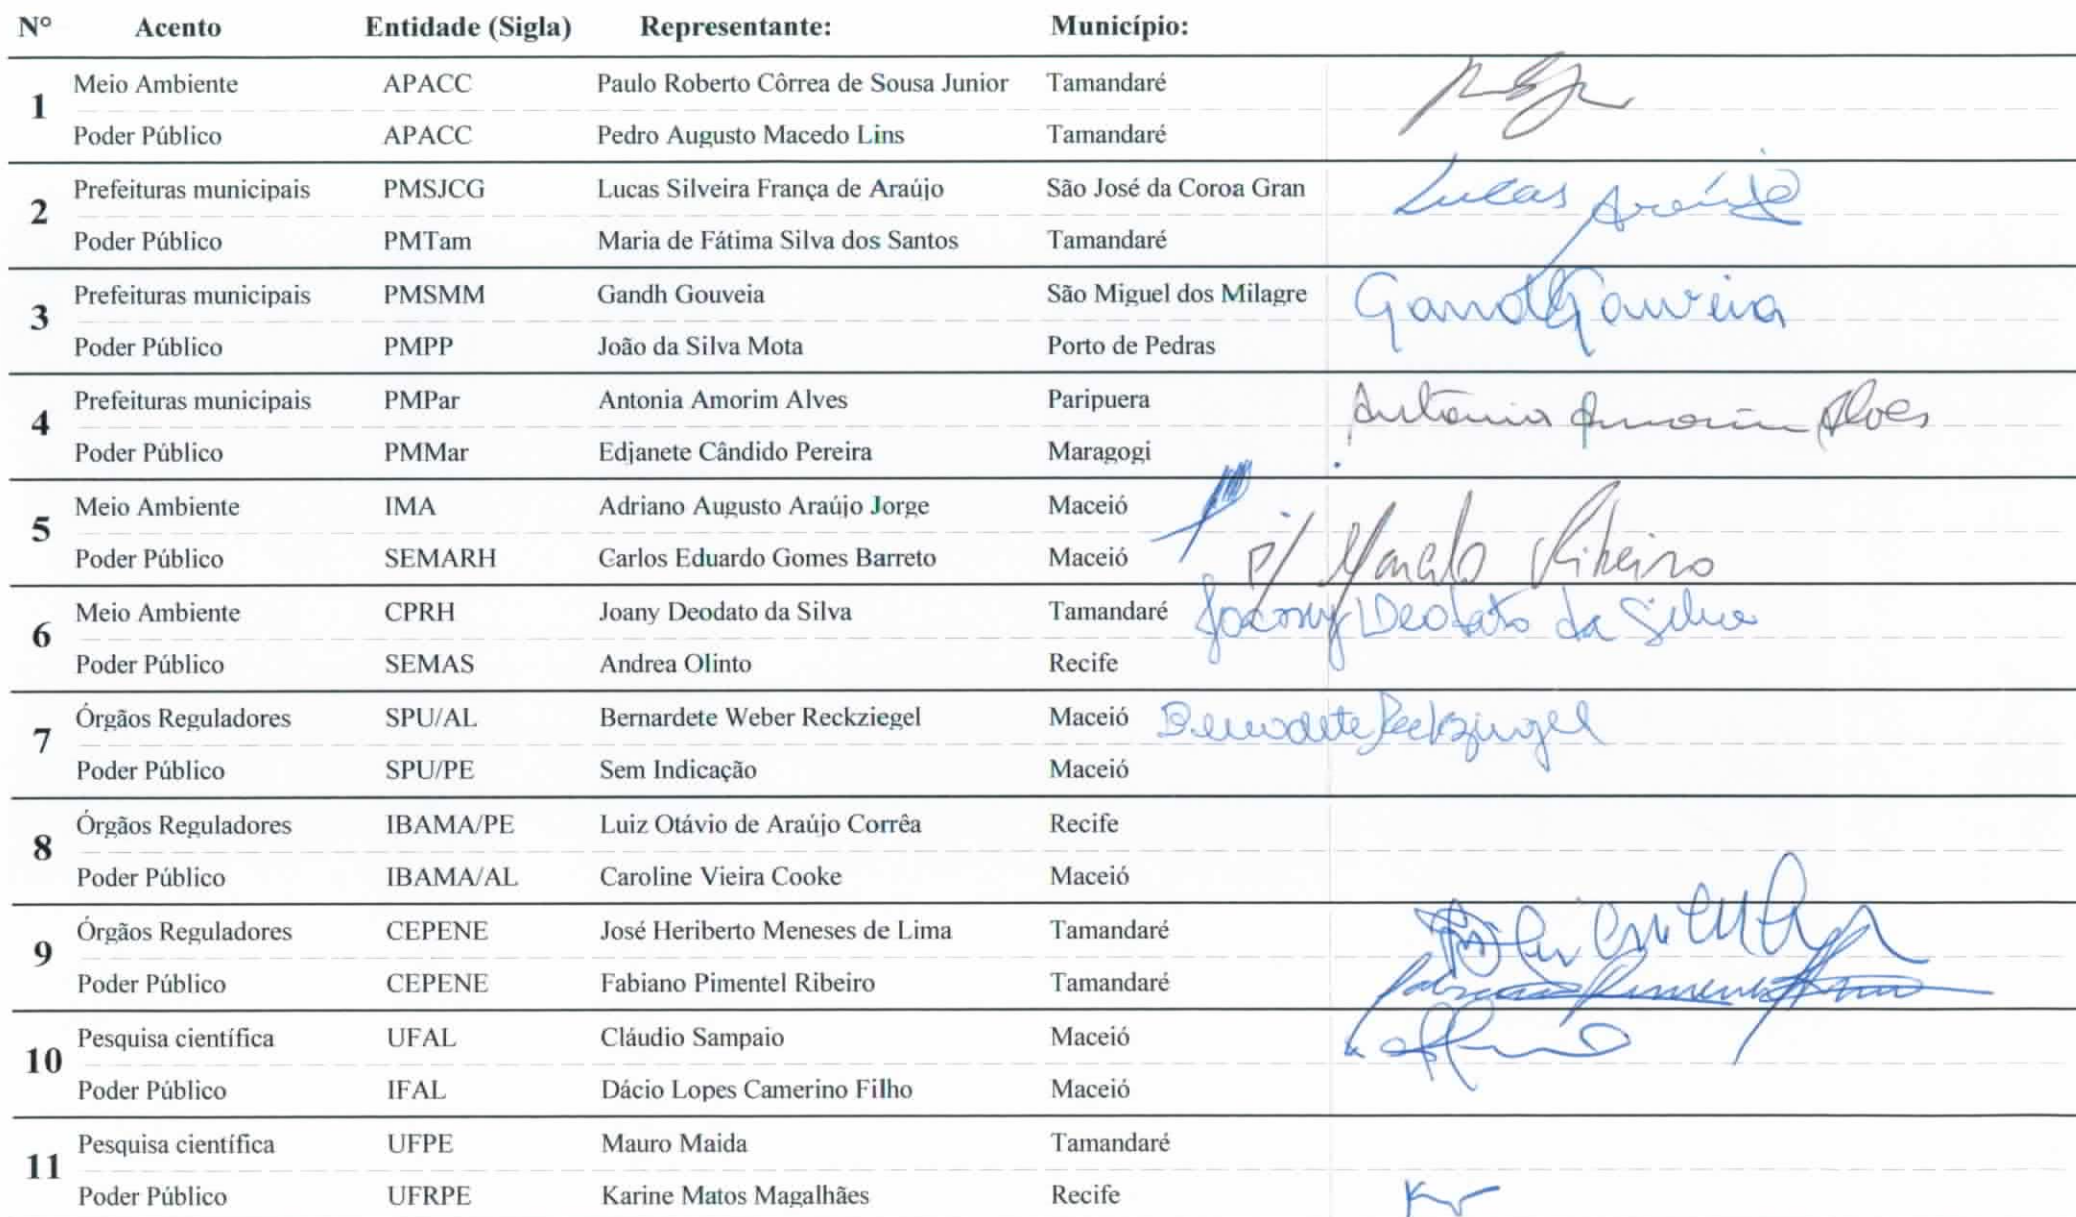 Nº Acento Entidade (Sigla) Representante: Município:
1
Meio Ambiente APACC Paulo Roberto Côrrea de Sousa Junior Tamandaré
Poder Público APACC Pedro Augusto Macedo Lins Tamandaré
2
Prefeituras municipais PMSJCG Lucas Silveira França de Araújo São José da Coroa Gran Lucas Araújo
Poder Público PMTam Maria de Fátima Silva dos Santos Tamandaré
3
Prefeituras municipais PMSMM Gandh Gouveia São Miguel dos Milagre Gandh Gouveia
Poder Público PMPP João da Silva Mota Porto de Pedras
4
Prefeituras municipais PMPar Antonia Amorim Alves Paripuera Antonia Amorim Alves
Poder Público PMMar Edjanete Cândido Pereira Maragogi
5
Meio Ambiente IMA Adriano Augusto Araújo Jorge Maceió
Poder Público SEMARH Carlos Eduardo Gomes Barreto Maceió P/ Ribeiro
6
Meio Ambiente CPRH Joany Deodato da Silva Tamandaré Joany Deodato da Silva
Poder Público SEMAS Andrea Olinto Recife
7
Órgãos Reguladores SPU/AL Bernardete Weber Reckziegel Maceió Bernardete Reckziegel
Poder Público SPU/PE Sem Indicação Maceió
8
Órgãos Reguladores IBAMA/PE Luiz Otávio de Araújo Corrêa Recife
Poder Público IBAMA/AL Caroline Vieira Cooke Maceió
9
Órgãos Reguladores CEPENE José Heriberto Meneses de Lima Tamandaré
Poder Público CEPENE Fabiano Pimentel Ribeiro Tamandaré
10
Pesquisa científica UFAL Cláudio Sampaio Maceió
Poder Público IFAL Dácio Lopes Camerino Filho Maceió
11
Pesquisa científica UFPE Mauro Maida Tamandaré
Poder Público UFRPE Karine Matos Magalhães Recife